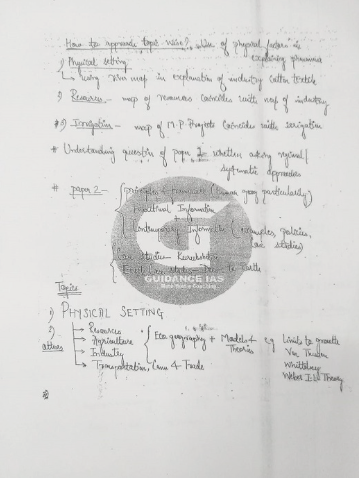 How to approach topic wise? - Use of physical factors in explaining phenomena
1) Physical setting
↳ using river map in explanation of industry cotton textile
2) Resources - map of resources coincides with map of industry
*3) Irrigation - map of M.P. Projects coincides with irrigation
* Understanding question of paper 2 - whether asking regional/
systematic approaches
# paper 2 -
principles + framework (human geog particularly)
Additional Information
Contemporary Information (examples, policies,
case studies)
Case Studies - Kurukshetra
Down to Earth
GUIDANCE IAS
Topics
1) PHYSICAL SETTING
2) → Resources
others → Agriculture
→ Industry
→ Transportation, Comm & Trade
Eco. geography + Models & Theories e.g. Limits to growth
Von Thunen
Whittlesey
Weber I. L. Theory